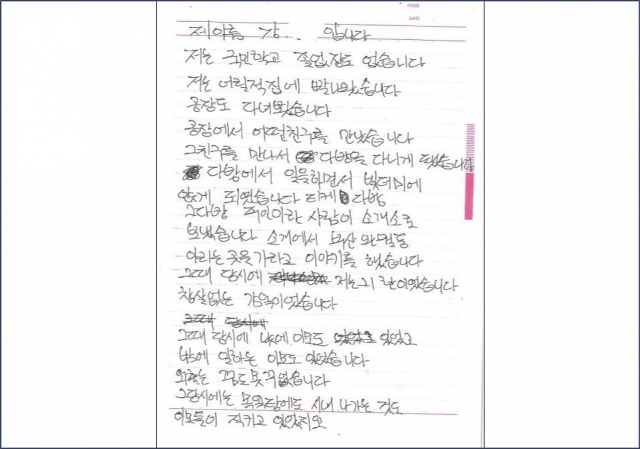 제 이름 강.. 입니다
저는 국민학고 졸업장도 업습니다
저는 어릴적 집에 빨나왔습니다
공장도 다녀봤습니다
공장에서 어떤친구를 만났습니다
그친구를 만나서 다방을 다니게 됐습니다
다방에서 일을하면서 빚더미에
앉게 되였습니다 티켓 다방
그다방 주인이란 사람이 소개소로
보냈습니다 소개에서
이라는 곳을가라고 이야기를 했습니다
그때 당시에 저는 21 한이였습니다
창살없는 감옥이였습니다
그때 당시에
그때 당시에 낮에 이모도 있었고
밤에 일하는 이모도 있었습니다
외출는 꿈도못꾸없습니다
그당시에는 목욕탕에도 시내 나가는 것도
이모들이 직키고 있었지요